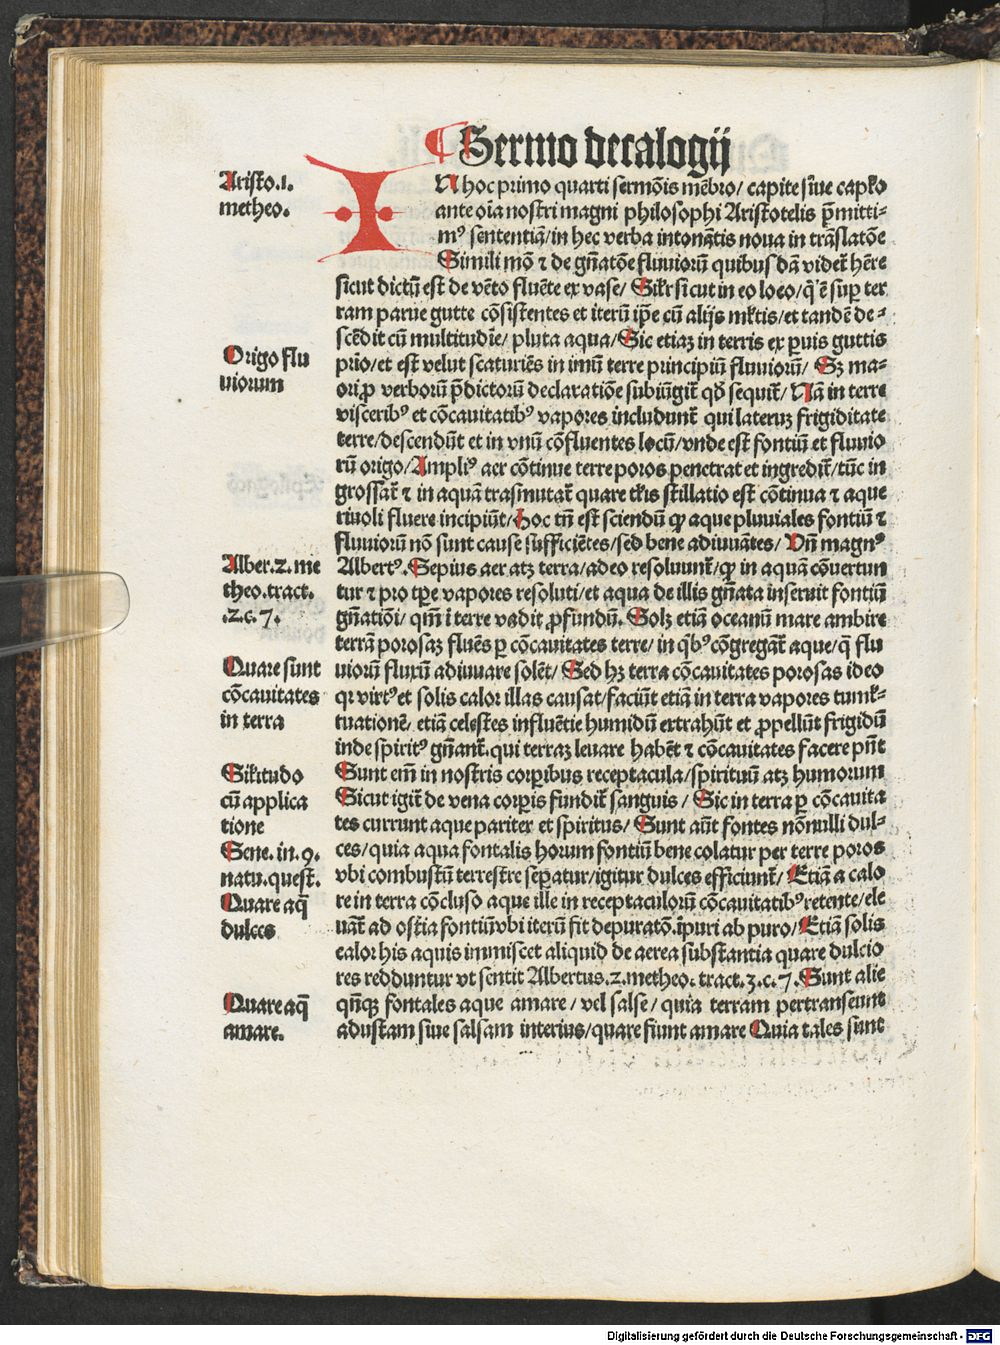 ¶ Sermo decalogij
Aristo.1.
metheo.
IN hoc primo quarti sermōis mēbro/ capite siue capło
ante oīa nostri magni philosophi Aristotelis p̄mitti⸗
mꝰ sententiā/in hec verba intonātis noua in trāslatōe
Simili mō ⁊ de gn̄atōe fluuiorū quibus dā videt̄ hr̄e
sicut dictū est de vēto fluēte ex vase/ Silr̄ sicut in eo loco/q̄ ē suꝑ ter
ram parue gutte cōsistentes et iterū ip̄e cū alijs ml̄tis/et tandē de⸗
scēdit cū multitudīe/ pluta aqua/Sic etiaꝫ in terris ex ꝑuis guttis
Origo flu
uiorum
prīo/et est velut scaturiēs in imū terre principiū fluuiorū/ Sꝫ ma⸗
ori ꝓ verborū p̄dictorū declaratiōe subiūgit̄ qd̄ sequit̄/ Nā in terre
visceribꝰ et cōcauitatibꝰ vapores includunt̄ qui lateruꝫ frigiditate
terre/descendūt et in vnū cōfluentes locū/vnde est fontiū et fluuio
rū origo/Ampliꝰ aer cōtinue terre poros penetrat et ingredit̄/tūc in
grossat̄ ⁊ in aquā trāsmutat̄ quare tl̄is stillatio est cōtinua ⁊ aque
riuoli fluere incipiūt/hoc tn̄ est sciendū ꝙ aque pluuiales fontiū ⁊
fluuiorū nō sunt cause sufficiētes/sed bene adiuuātes/ Vn̄ magnꝰ
Alber.2.me
theo.tract.
.2.c.7.
Albertꝰ.Sepius aer atꝫ terra/adeo resoluunt̄/ꝙ in aquā cōuertun
tur ⁊ pro tꝑe vapores resoluti/et aqua de illis gn̄ata inseruit fontiū
gn̄atiōi/ qm̄ ī terre vadit ꝓfundū. Solꝫ etiā oceanū mare ambire
terrā porosaꝫ fluēs ꝑ cōcauitates terre/ in qͥbꝰ cōgregāt̄ aque/q̄ flu
Quare sunt
cōcauitates
in terra
uiorū fluxū adiuuare solēt/ Sed hꝫ terra cōcauitates porosas ideo
qꝛ virtꝰ et solis calor illas causat/faciūt etiā in terra vapores tuml̄⸗
tuationē/ etiā celestes influētie humidū extrahūt et ꝓpellūt frigidū
inde spiritꝰ gn̄ant̄.qui terraꝫ leuare habēt ⁊ cōcauitates facere pn̄t
Sil̄itudo
cū applica
tione
Sunt em̄ in nostris corꝑibus receptacula/spirituū atꝫ humorum
Sicut igit̄ de vena corꝑis fundit̄ sanguis / Sic in terra ꝑ cōcauita
tes currunt aque pariter et spiritus/ Sunt aūt fontes nōnulli dul⸗
Sene. in.9.
natu.quest.
Quare aq̄
dulces
ces/quia aqua fontalis horum fontiū bene colatur per terre poros
vbi combustū terrestre seꝑatur/igitur dulces efficiunt̄/ Etiā a calo
re in terra cōcluso aque ille in receptaculorū cōcauitatibꝰ retente/ele
uāt̄ ad ostia fontiū vbi iterū fit depuratō.īpuri ab puro/ Etiā solis
calor his aquis immiscet aliquid de aerea substantia quare dulcio
res redduntur vt sentit Albertus.2.metheo. tract.3.c.7. Sunt alie
Quare aq̄
amare.
qn̄qꝫ fontales aque amare/ vel salse/ quia terram pertranseunt
adustam siue salsam interius/quare fiunt amare Quia tales sunt
Digitalisierung gefördert durch die Deutsche Forschungsgemeinschaft - DFG